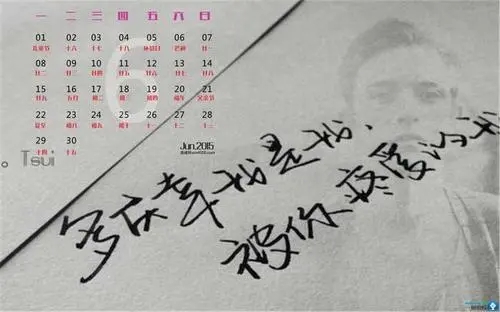 一 二 三 四 五 六 日
01 02 03 04 05 06 07
儿童节 十六 十七 十八 环境日 芒种 廿一
08 09 10 11 12 13 14
廿二 廿三 廿四 廿五 廿六 廿七 廿八
15 16 17 18 19 20 21
廿九 五月 初二 初三 初四 端午 父亲节
22 23 24 25 26 27 28
夏至 初八 初九 初十 十一 十二 十三
29 30
十四 十五
6
Tsui
Jun.2015
多庆幸我是我,
被你疼爱的我